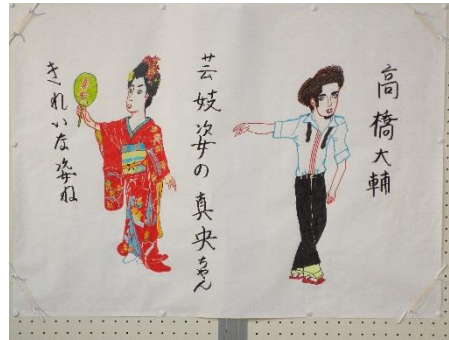 高橋大輔
芸妓姿の真央ちゃん
きれいな姿ね